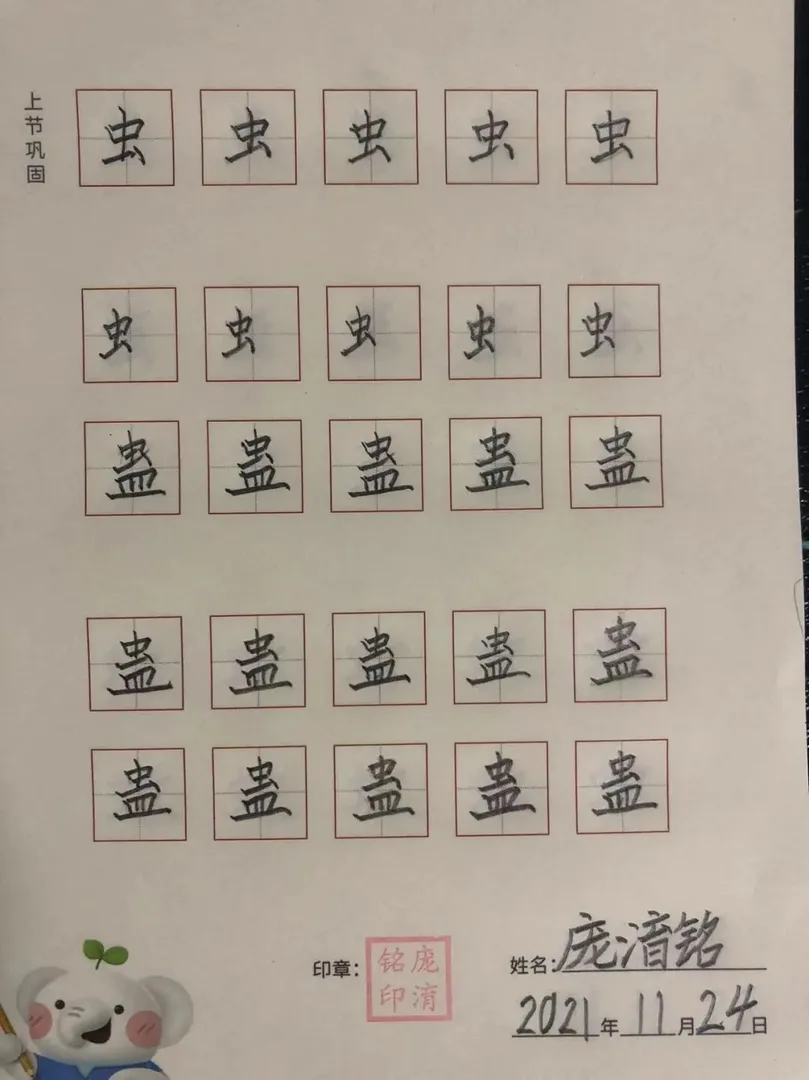 上节巩固
虫 虫 虫 虫 虫
虫 虫 虫 虫 虫
蛊 蛊 蛊 蛊 蛊
蛊 蛊 蛊 蛊 蛊
蛊 蛊 蛊 蛊 蛊
印章：
庞淯铭印
姓名：庞淯铭
2021年11月24日